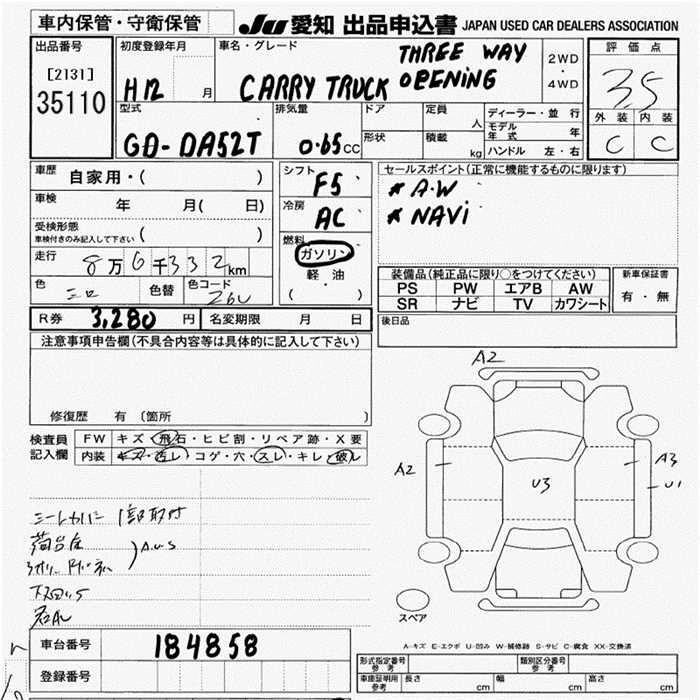 車内保管・守衛保管
JU 愛知 出品申込書 JAPAN USED CAR DEALERS ASSOCIATION
出品番号 初度登録年月 車名・グレード 評価点
THREE WAY
[2131] H12 月 CARRY TRUCK OPENING 2WD・4WD 3.5
35110
外装 内装
C C
型式 排気量 ドア 定員 人 ディーラー・並行
GD-DA52T 0.65cc 形状 積載 kg モデル年式 年
ハンドル 左・右
車歴 自家用・( )
シフト F5
セールスポイント(正常に機能するものに限ります)
* A・W
* NAVi
車検 年 月( 日)
冷房 AC
受検形態 ( )
車検付きのみ記入して下さい
燃料 ガソリン
軽油
( ・ )
走行 8万6千332km
色 色替 色コード 26U
装備品(純正品に限り○をつけてください) 新車保証書
PS PW エアB AW 有・無
SR ナビ TV カワシート
R券 3,280円 名変期限 月 日
後日品
注意事項申告欄(不具合内容等は具体的に記入して下さい)
修復歴 有 (箇所 )
検査員記入欄 FW キズ・飛石・ヒビ割・リペア跡・X要
内装 キズ・汚レ・コゲ・穴・スレ・キレ・破レ
A2
A2
U3
A3
U1
A.U.S
スペア
A-キズ E-エクボ U-凹み W-補修跡 S-サビ C-腐食 XX-交換済
車台番号 184858
登録番号
形式指定番号 参考 類別区分番号 参考
車庫証明用 参考 長さ cm 幅 cm 高さ cm